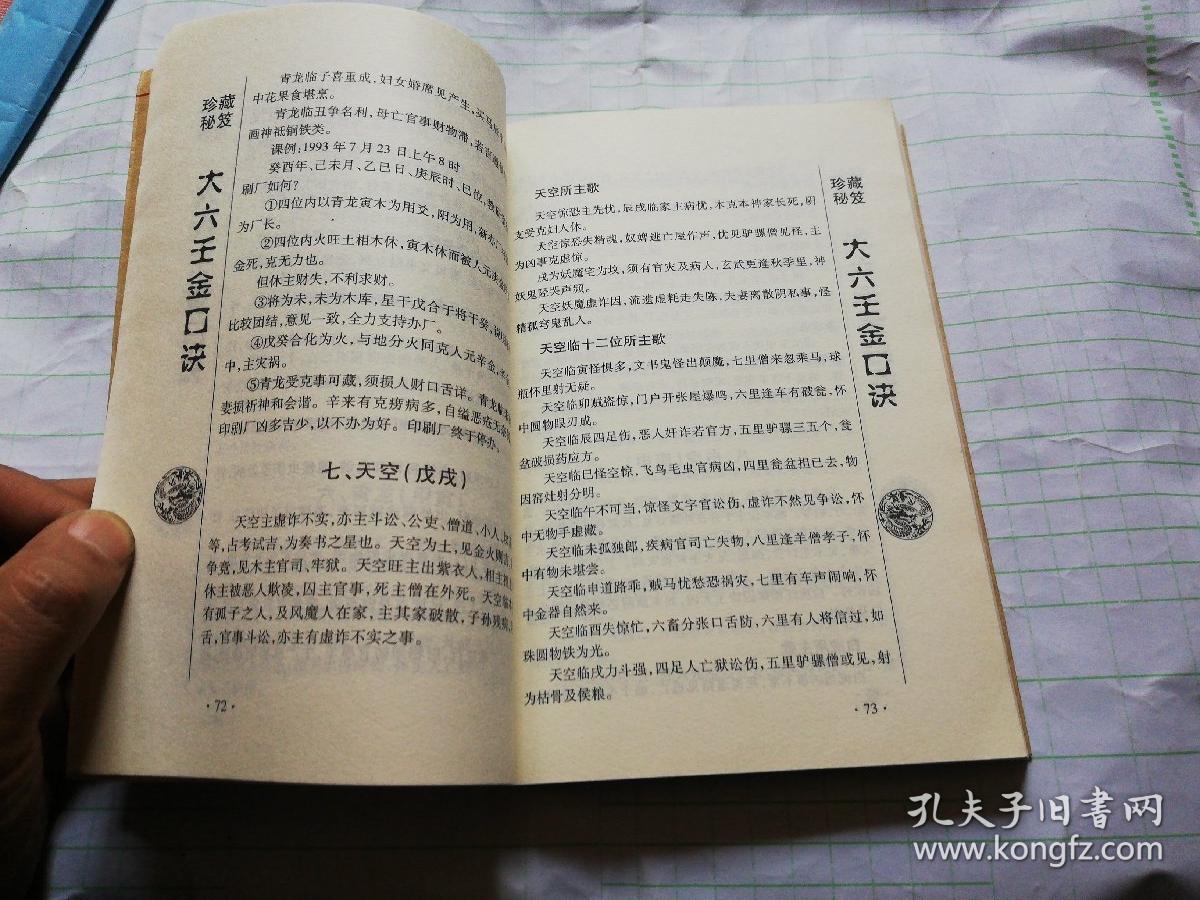 珍藏
秘笈
大六壬金口诀
青龙临子喜重成,妇女婚席见产生,买
中花果食堪烹。
青龙临丑争名利,母亡官事财物滞,若
画神祗铜铁类。
课例:1993年7月23日上午8时
癸酉年、己未月、乙巳日、庚辰时、巳位,
刷厂如何?
①四位内以青龙寅木为用爻,阴为用,新
为厂长。
②四位内火旺土相木休,寅木休而被人元
金死,克无力也。
但休主财失,不利求财。
③将为未,未为木库,星干戊合于将干癸,
比较团结,意见一致,全力支持办厂。
④戊癸合化为火,与地分火同克人元辛金,
中,主灾祸。
⑤青龙受克事可藏,须损人财口舌详。青龙临
妻损祈神和会谐。辛来有克痨病多,自缢恶疮无
印刷厂凶多吉少,以不办为好。印刷厂终于停办。
七、天空(戊戌)
天空主虚诈不实,亦主斗讼、公吏、僧道,小人
等,占考试吉,为奏书之星也。天空为土,见金火则
争竞,见木主官司、牢狱。天空旺主出紫衣人,相主
休主被恶人欺凌,囚主官事,死主僧在外死。天空临
有孤子之人,及风魔人在家,主其家破散,子孙残疾,
舌,官事斗讼,亦主有虚诈不实之事。
·72·
天空所主歌
天空惊恐主先忧,辰戌临家主病忧,木克本神家长死,阴
支受克妇人休。
天空惊恐失精魂,奴婢逃亡屋作声,忧见驴骡僧见怪,主
为凶事克虚惊。
戌为妖魔宅为坟,须有官灾及病人,玄武更逢秋季里,神
妖鬼怪哭声频。
天空妖魔虚诈因,流滥虚耗走失陈,夫妻离散阴私事,怪
精孤穷鬼乱人。
天空临十二位所主歌
天空临寅怪惧多,文书鬼怪出颠魔,七里僧来忽乘马,球
瓶怀里射无疑。
天空临卯贼盗惊,门户开张屋爆鸣,六里逢车有破瓮,怀
中圆物眼刃成。
天空临辰四足伤,恶人奸诈若官方,五里驴骡三五个,瓮
盆破损药应方。
天空临巳怪空惊,飞鸟毛虫官病凶,四里瓮盆担已去,物
因窑灶射分明。
天空临午不可当,惊怪文字官讼伤,虚诈不然见争讼,怀
中无物手虚藏。
天空临未孤独郎,疾病官司亡失物,八里逢羊僧孝子,怀
中有物未堪尝。
天空临申道路乖,贼马忧愁恐祸灾,七里有车声闹响,怀
中金器自然来。
天空临酉失惊忙,六畜分张口舌防,六里有人将信过,如
珠圆物铁为光。
天空临戌力斗强,四足人亡狱讼伤,五里驴骡僧或见,射
为枯骨及侯粮。
·73·
珍藏
秘笈
大六壬金口诀
孔夫子旧书网
www.kongfz.com